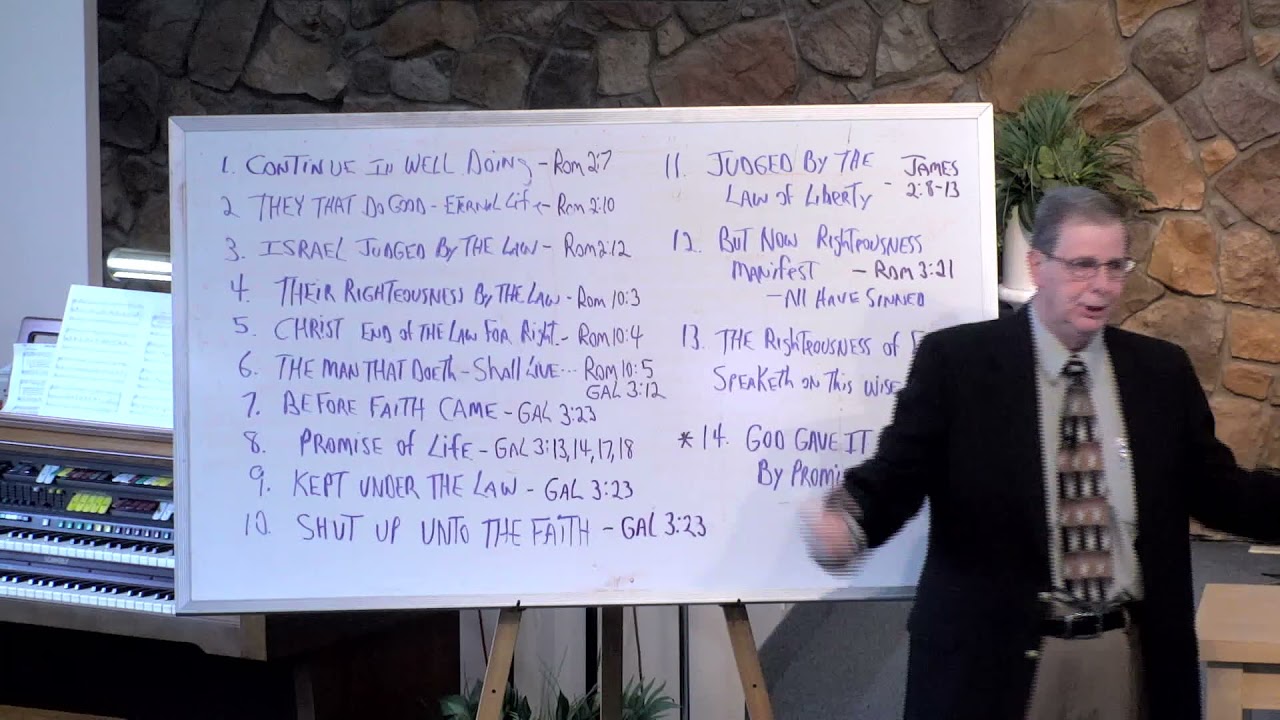 1. CONTINUE IN WELL DOING - ROM 2:7
2 THEY THAT DO GOOD - ETERNAL LIFE - ROM 2:10
3. ISRAEL JUDGED BY THE LAW - ROM 2:12
4. THEIR RIGHTEOUSNESS BY THE LAW - ROM 10:3
5. CHRIST END OF THE LAW FOR RIGHT. - ROM 10:4
6. THE MAN THAT DOETH - SHALL LIVE... ROM 10:5
GAL 3:12
7. BEFORE FAITH CAME - GAL 3:23
8. PROMISE OF LIFE - GAL 3:13,14,17,18
9. KEPT UNDER THE LAW - GAL 3:23
10. SHUT UP UNTO THE FAITH - GAL 3:23
11. JUDGED BY THE
LAW OF LIBERTY - JAMES 2:8-13
12. BUT NOW RIGHTEOUSNESS
MANIFEST - ROM 3:21
- All HAVE SINNED
13. THE RIGHTEOUSNESS OF
SPEAKETH ON THIS WISE
* 14. GOD GAVE IT
BY